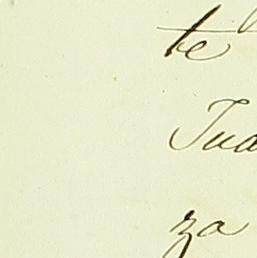 te
Jua
za